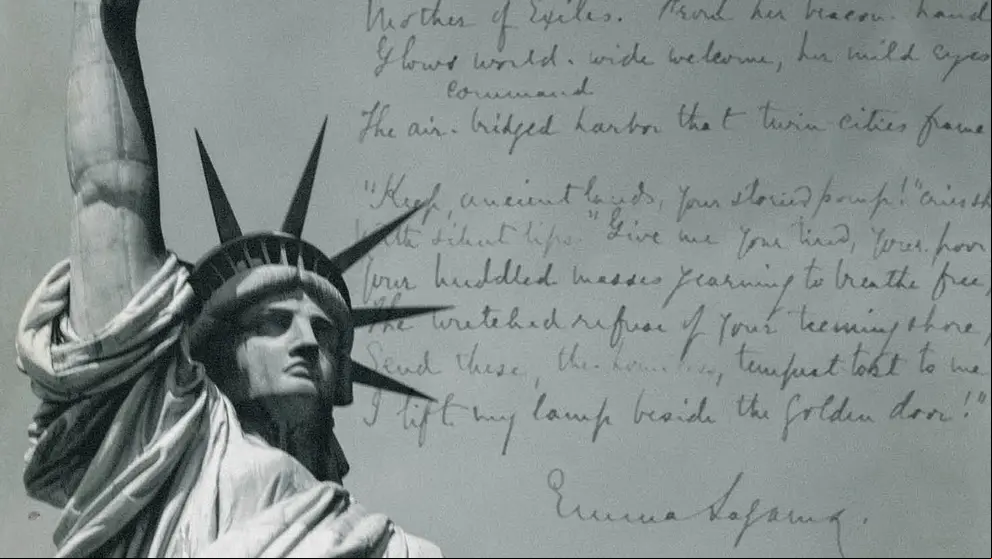 Mother of Exiles. From her beacon-hand
Glows world-wide welcome, her mild eyes
command
The air-bridged harbor that twin cities frame
"Keep, ancient lands, your storied pomp!" cries sh
With silent lips. "Give me your tired, your poor
Your huddled masses yearning to breathe free,
The wretched refuse of your teeming shore,
Send these, the homeless, tempest tost to me
I lift my lamp beside the golden door!"
Emma Lazarus.